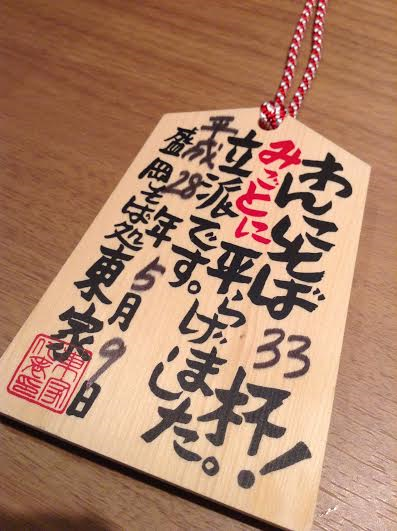 わんこそば33杯!
みごとに平らげました。
立派です。
平成28年5月9日
盛岡そば処東家